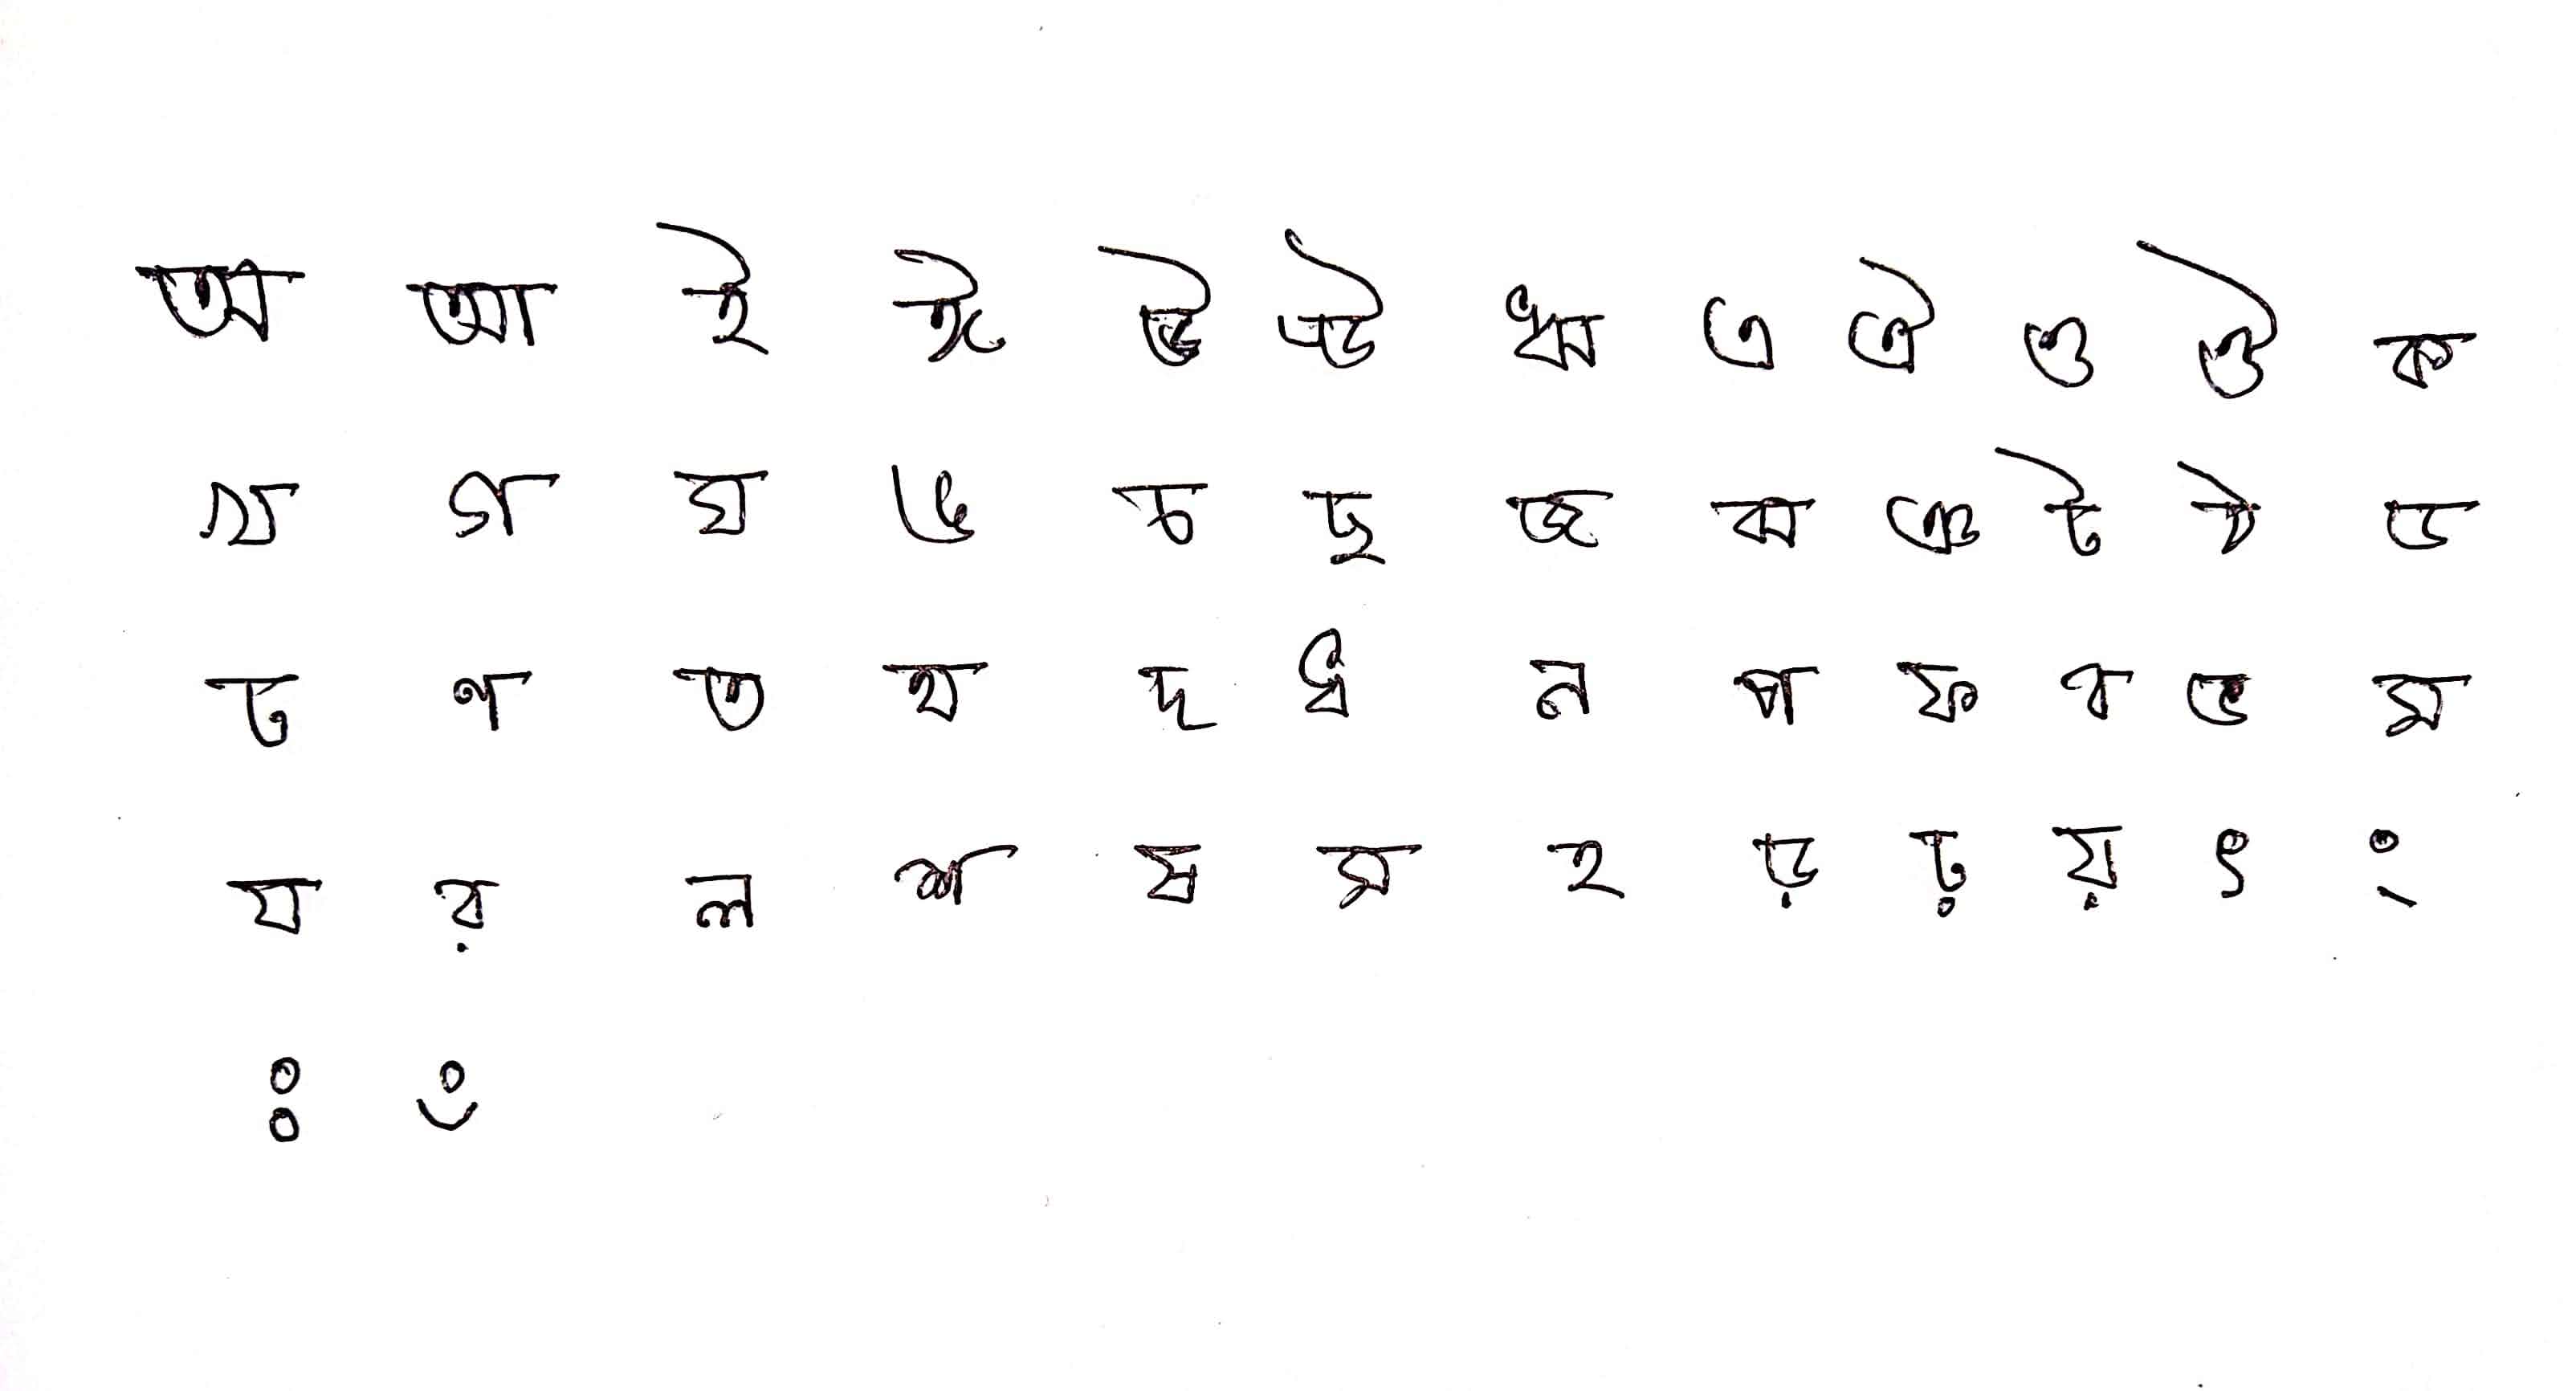 অ আ ই ঈ উ ঊ ঋ এ ঐ ও ঔ ক
খ গ ঘ ঙ চ ছ জ ঝ ঞ ট ঠ ড
ঢ ণ ত থ দ ধ ন প ফ ব ভ ম
য র ল শ ষ স হ ড় ঢ় য় ৎ ং
ঃ ঁ